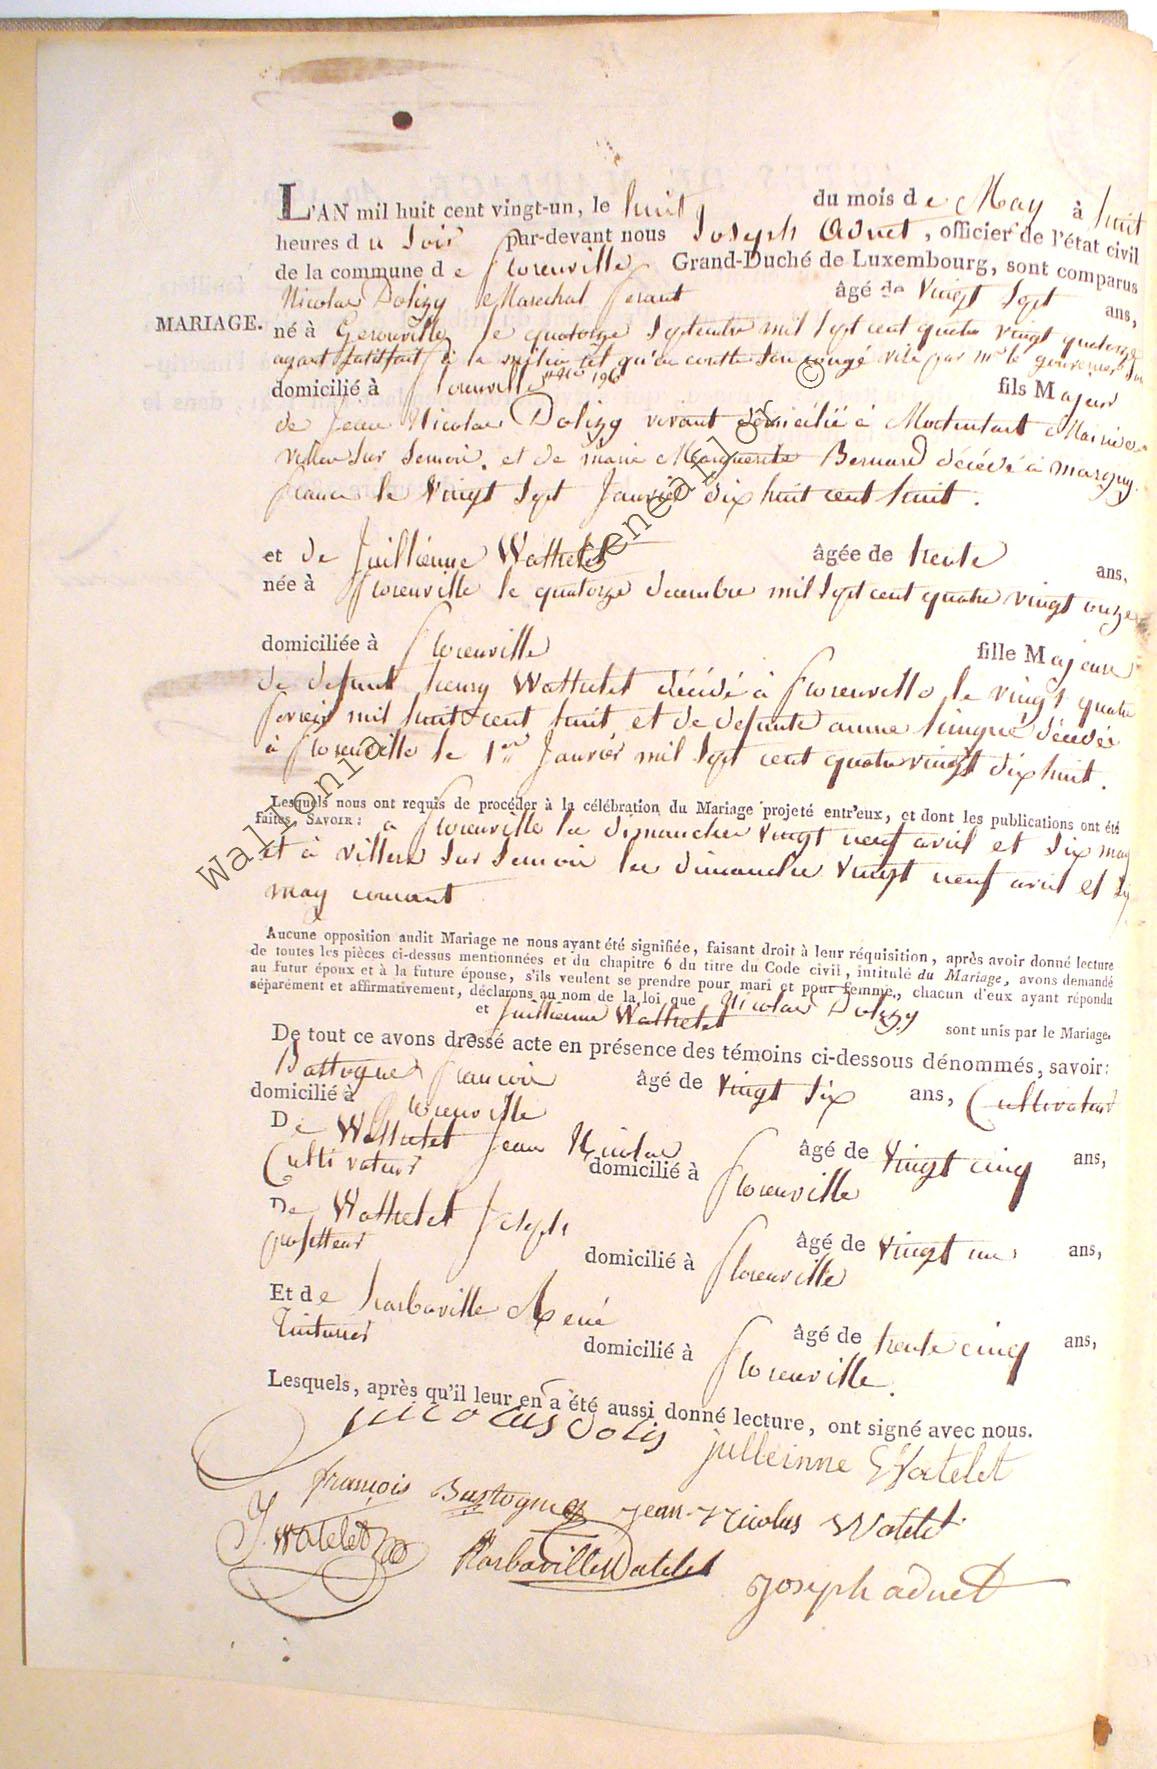 L'AN mil huit cent vingt-un, le huit du mois de May à huit
heures du soir par-devant nous Joseph Adnet, officier de l'état civil
de la commune de florenville Grand-Duché de Luxembourg, sont comparus
Nicolas Dolizy Marechal ferant âgé de vingt sept ans,
MARIAGE.
né à Gerouville le quatorze Septembre mil sept cent quatre vingt quatorze
ayant satisfait à la milice tel qu'en conste son congé visé par mr le gouverneur
domicilié à florenville 196 fils Majeur
de Jean Nicolas Dolizy vivant domicilié à Mairie
villers Sur Semois. et de marie Marguerite Bernard décédé à margny
france le vingt sept Janvier dix huit cent huit.
et de Juillienne Wathelet âgée de trente ans,
née à florenville le quatorze decembre mil sept cent quatre vingt onze
domiciliée à florenville fille Majeure
de defunt henry Wathelet décédé à florenville le vingt quatre
fevrier mil huit cent huit et de defunte anne décédée
à florenville le 1er Janvier mil sept cent quatre vingt dix huit.
Lesquels nous ont requis de procéder à la célébration du Mariage projeté entr'eux, et dont les publications ont été
faites, SAVOIR: à florenville les dimanches vingt neuf avril et six may
et à villers sur semois les dimanches vingt neuf avril et six
may courant
Aucune opposition audit Mariage ne nous ayant été signifiée, faisant droit à leur réquisition, après avoir donné lecture
de toutes les pièces ci-dessus mentionnées et du chapitre 6 du titre du Code civil, intitulé du Mariage, avons demandé
au futur époux et à la future épouse, s'ils veulent se prendre pour mari et pour femme, chacun d'eux ayant répondu
séparément et affirmativement, déclarons au nom de la loi que Nicolas Dolizy
et Juillienne Wathelet sont unis par le Mariage.
De tout ce avons dressé acte en présence des témoins ci-dessous dénommés, savoir:
Bastogne francois âgé de vingt six ans, Cultivateur
domicilié à florenville
De Wathelet Jean Nicolas âgé de vingt cinq ans,
Cultivateur domicilié à florenville
De Wathelet Joseph âgé de vingt un ans,
domicilié à florenville
Et de harbaville René âgé de trente cinq ans,
Tinturier domicilié à florenville.
Lesquels, après qu'il leur en a été aussi donné lecture, ont signé avec nous.
nicolas dolis julleinne Watelet
françois Bastogne jean-nicolas Watelet
J. Watelet Harbaville Watelet
Joseph adnet
Wallonia © Geneallor